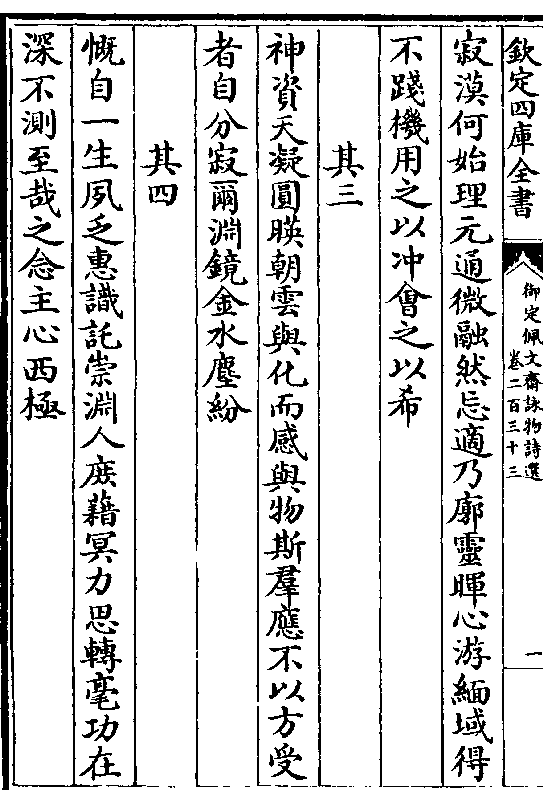 欽定四庫全書
御定佩文齋詠物詩選
卷二百三十三
一
寂漠何始理元通微融然忘適乃廓靈暉心游緬域得
不踐機用之以冲會之以希
其三
神資天凝圓暎朝雲與化而感與物斯羣應不以方受
者自分寂爾淵鏡金水塵紛
其四
慨自一生夙乏惠識託崇淵人庻藉冥力思轉毫功在
深不測至哉之念主心西極